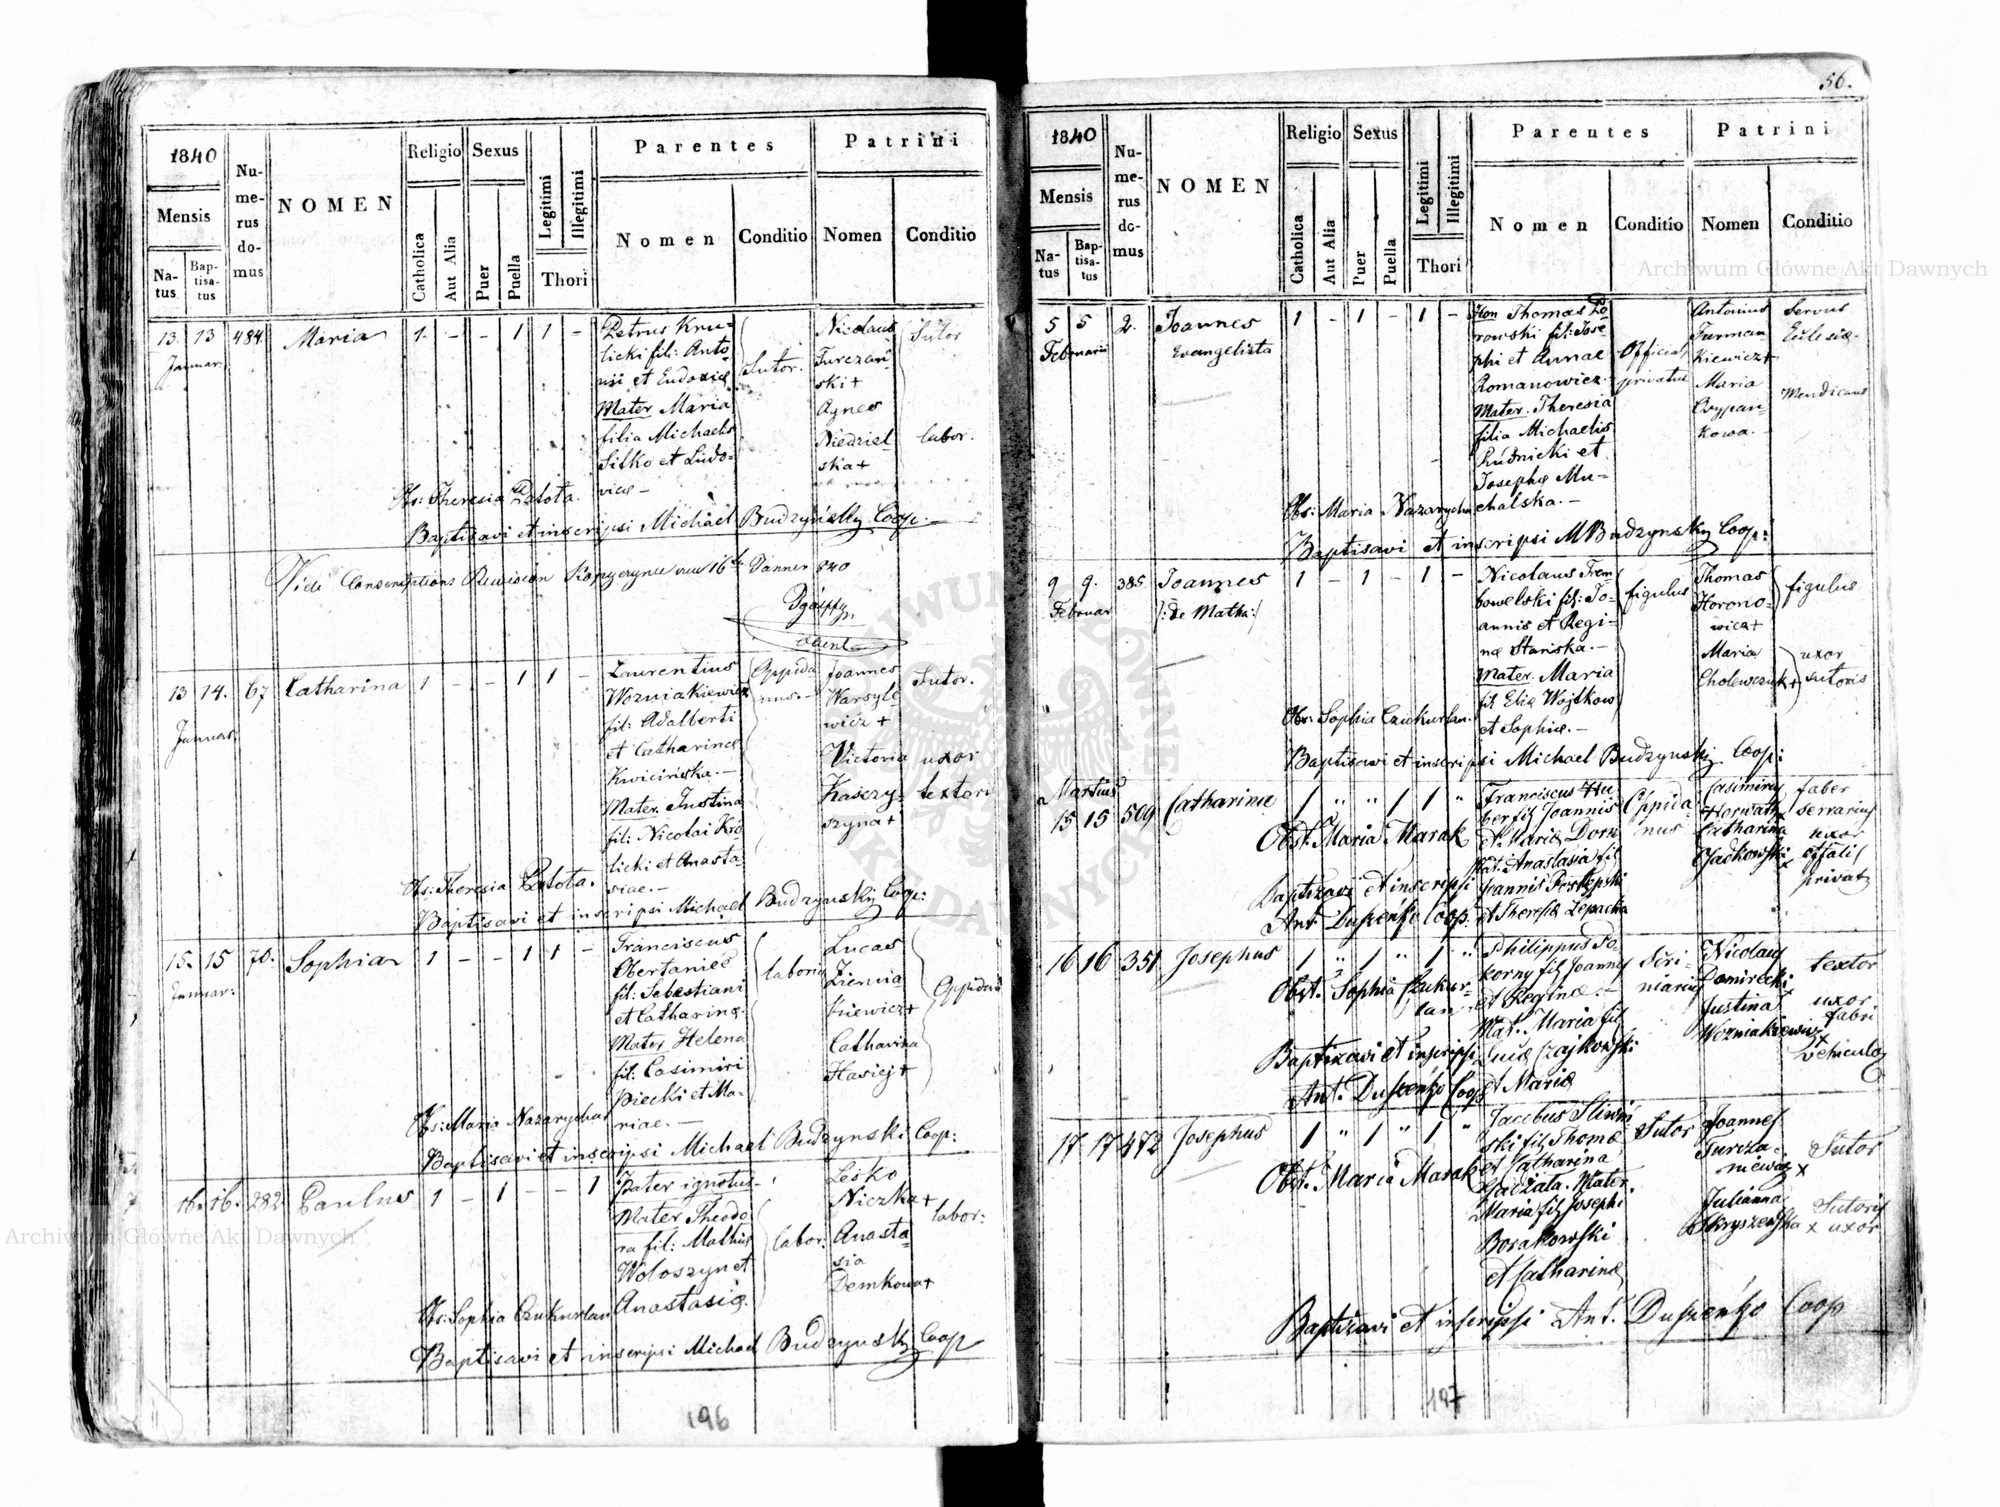 56.
1840
Mensis
Natus
Baptisatus
Numerus domus
NOMEN
Religio
Catholica
Aut Alia
Sexus
Puer
Puella
Legitimi
Illegitimi
Thori
Parentes
Nomen
Conditio
Patrini
Nomen
Conditio
13 13 484 Maria 1 - - 1 1 -
Januar:
Petrus Kru-
licki fil: Anto-
nii et Eudoxiæ
Mater Maria
filia Michaelis
Silko et Ludo-
vicæ -
Sutor.
Nicolaus
Turczań-
ski +
Agnes
Niedziel
ska +
Sutor
labor.
Obs: Theresia Zalota.
Baptisavi et inscripsi Michael Budzynsky Coop:
Vidi
13 14. 67 Catharina 1 - - 1 1 -
Januar:
Laurentius
Wozniakiewicz
fil: Adalberti
et Catharinæ
Kwicińska. -
Mater Justina
fil: Nicolai Kró
licki et Anasta-
siae. -
Oppida
nus. -
Joannes
Warsyle
wicz +
Victoria
Kaszzy-
szyna +
Sutor.
uxor
textori
Obs: Theresia Zalota.
Baptisavi et inscripsi Michael Budzynsky Coop:
15. 15 70. Sophia 1 - - 1 1 -
Januar:
Franciscus
Obertaniec
fil: Sebastiani
et Catharinæ
Mater Helena
fil: Casimiri
Piecki et Ma-
riae. -
Lucas
Ziemia
kiewicz +
Catharina
Hasiej +
Obs: Maria Nazarycha
Baptisavi et inscripsi Michael Budzynski Coop:
16. 16. 282. Paulus 1 - 1 - - 1
Pater ignotus -
Mater Theodo
ra fil: Mathiæ
Woloszyn et
Anastasiæ.
labor:
Lesko
Niczka +
Anasta-
sia
Demkowa +
labor:
Obs: Sophia Czukurlan
Baptisavi et inscripsi Michael Budzynsky Coop
196
1840
Mensis
Natus
Baptisatus
Numerus domus
NOMEN
Religio
Catholica
Aut Alia
Sexus
Puer
Puella
Legitimi
Illegitimi
Thori
Parentes
Nomen
Conditio
Patrini
Nomen
Conditio
5 5 2. Joannes 1 - 1 - 1 -
Februarii
Evangelista
Thomas Bo-
rowski fil: Jose
phi et Annae
Romanowicz.
Mater. Theresia
filia Michaelis
Rudnicki et
Josephæ Mu-
chalska. -
Official
privatus
Antonius
Furman
kiewicz +
Maria
kowa. -
Servus
Eclesiæ.
Mendicans
Obs: Maria Nazarycha
Baptisavi et inscripsi MBudzynsky Coop:
9 9. 385 Joannes 1 - 1 - 1 -
Februar
/: de Matha :/
Nicolaus Trem
bowelski fil: Jo-
annis et Regi-
næ Stańska. -
Mater. Maria
fil: Eliæ Wojtkow
et Sophiæ. -
figulus
Thomas
Horono-
wicz +
Maria
Cholewczuk +
figulus
uxor
sutoris
Obs: Sophia Czukurlan.
Baptisavi et inscripsi Michael Budzynski Coop:
Martius
15 15 509 Catharina 1 " " 1 1 "
Franciscus Hu
ber fil Joannis
et Mariæ Dorn
Mat. Anastasia fil
Joannis Postępski
et Theresiæ Lepacka
Oppida-
nus
Casimirus
Horwath x
Catharina
Jackowski x
faber
serrarius
uxor
offalis
privat
Obst. Maria Marak
Baptizavi et inscripsi
Ant. Duszeńko Coop.
16 16 351 Josephus 1 " 1 " 1 "
Philippus Po-
korny fil Joannis
et Reginæ. -
Mat. Maria fil
Lucæ Czajkowski
et Mariæ
Scri-
niarius
Nicolaus
Domirecki x
Justina
Wozniakiewicz x
textor
uxor
fabri
Obst. Sophia Czukur-
lan
Baptizavi et inscripsi
Ant. Duszeńko Coop
17 17 472 Josephus 1 " 1 " 1 "
Jacobus Sliwiń
ski fil Thomæ
et Catharina
Gadzala. Mater.
Maria fil Josephi
Borakowski
et Catharinæ
Sutor
Joannes
Turcza-
niewicz x
Julianna
Skryszewska x
Sutor
Sutoris
uxor
Obst. Maria Marak
Baptizavi et inscripsi Ant. Duszeńko Coop
197
Archiwum Główne Akt Dawnych
Archiwum Główne Akt Dawnych